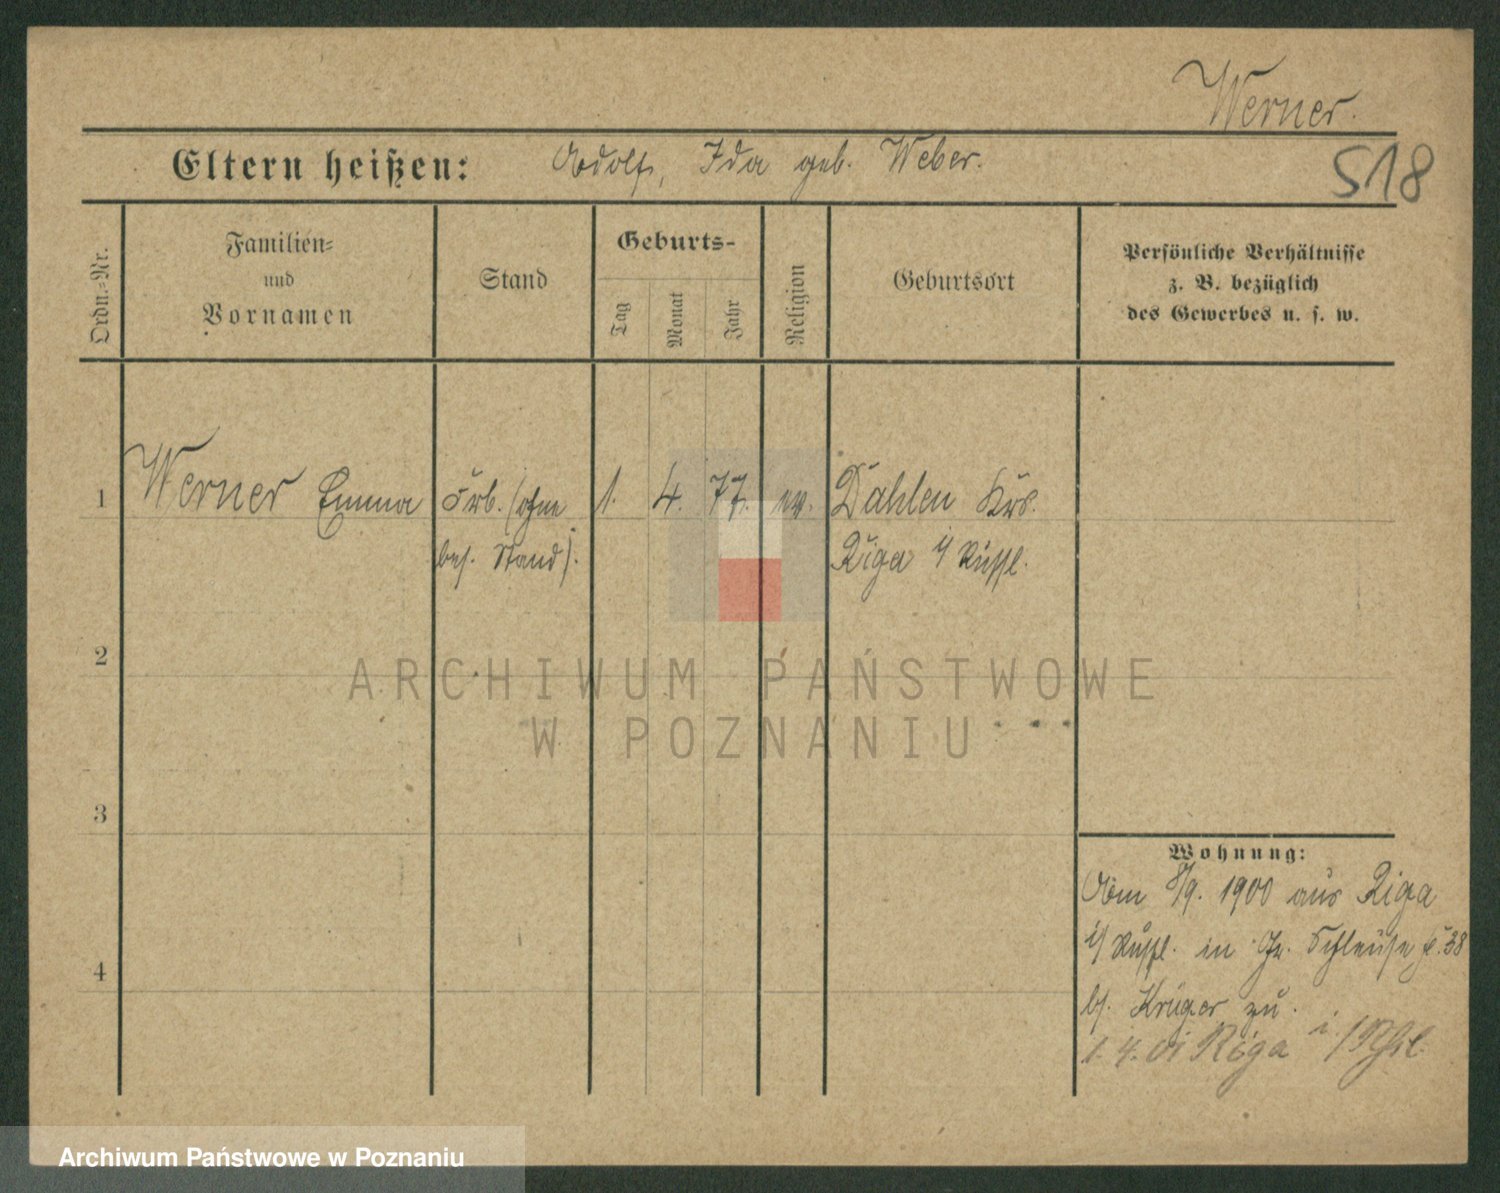 Werner.
Eltern heißen: Adolf, Ida geb. Weber.
518
Ordn.-Nr.
Familien-
und
Vornamen
Stand
Geburts-
Tag
Monat
Jahr
Religion
Geburtsort
Persönliche Verhältnisse
z. B. bezüglich
des Gewerbes u. s. w.
1 Werner Emma (ohne 1. 4. 77. ev. Dahlen Krs.
bes. Stand). Riga i/ Russl.
2
ARCHIWUM PAŃSTWOWE
W POZNANIU
3
Wohnung:
Am 8/9. 1900 aus Riga
i/ Russl. in Gr. Schleuse 38
b/. Krüger zu.
4
1. 4. 01 Riga i/Rßl.
Archiwum Państwowe w Poznaniu